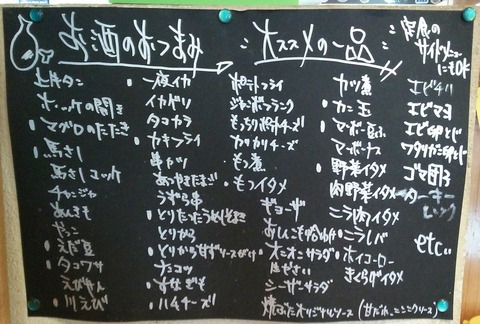 お酒のおつまみ
上タン
ホッケの開き
マグロのたたき
馬さし
馬さしユッケ
チャンジャ
あんきも
やっこ
えだ豆
タコワサ
えびせん
川えび
一夜イカ
イカゲソ
タコカラ
カキフライ
串カツ
あつやきたまご
うずら串
とりカラ
とりから甘ずソースがけ
ナンコツ
すなぎも
ハムチーズ
オススメの一品
ポテトフライ
ジャンボフランク
もっちりポテトチーズ
カリカリチーズ
もつ煮
もつイタメ
ギョーザ
おしんこもり合わせ
オニオンサラダ
シーザーサラダ
焼ぶたオリジナルソース
カツ煮
カニ玉
マーボー豆ふ
マーボーナス
野菜イタメ
肉野菜イタメ
ニラ肉イタメ
ニラレバ
ホイコーロー
きくらげイタメ
定食の
サイドメニュー
にもOK
エビチリ
エビマヨ
エビ卵とじ
ワタリガニ卵とじ
etc…